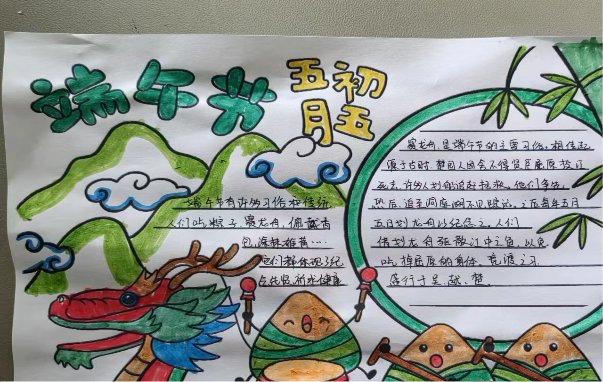 端午节
五月初五
端午节有许多习俗和传统
人们吃粽子、赛龙舟、佩戴香
包
他们都体现了纪
赛龙舟是端午节的主要习俗,相传起
源于古时楚国人因舍不得贤臣屈原投江
死去,许多人划船追赶拯救,他们争先
恐后,追至洞庭湖不见踪迹,之后每年五月
五日划龙舟以纪念之,人们
借划龙舟驱散江中之鱼,以免
吃掉屈原的身体,竞渡之习
盛行于吴、越、楚。